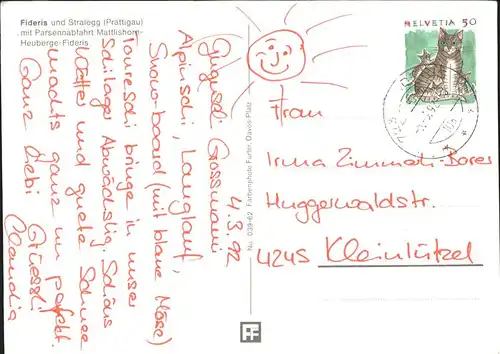 Fideris und Stralegg (Prättigau)
mit Parsennabfahrt Mattlishorn-
Heuberge-Fideris
HELVETIA 50
4.3.92
Guguseli Grossmami
Alpinschi, Langlauf,
Snow-board (mit blaue Möse)
Toureschi bringe in unser
Schilager Abwächslig. Schöns
Wätter und guete Schnee
machts ganz perfekt.
Ganz liebi Grüessli
Claudia
No. 039-62 Farbenphoto Furter, Davos-Platz
Frau
Irma Zimmerli-Borer
Huggerwaldstr.
4245 Kleinlützel
FF